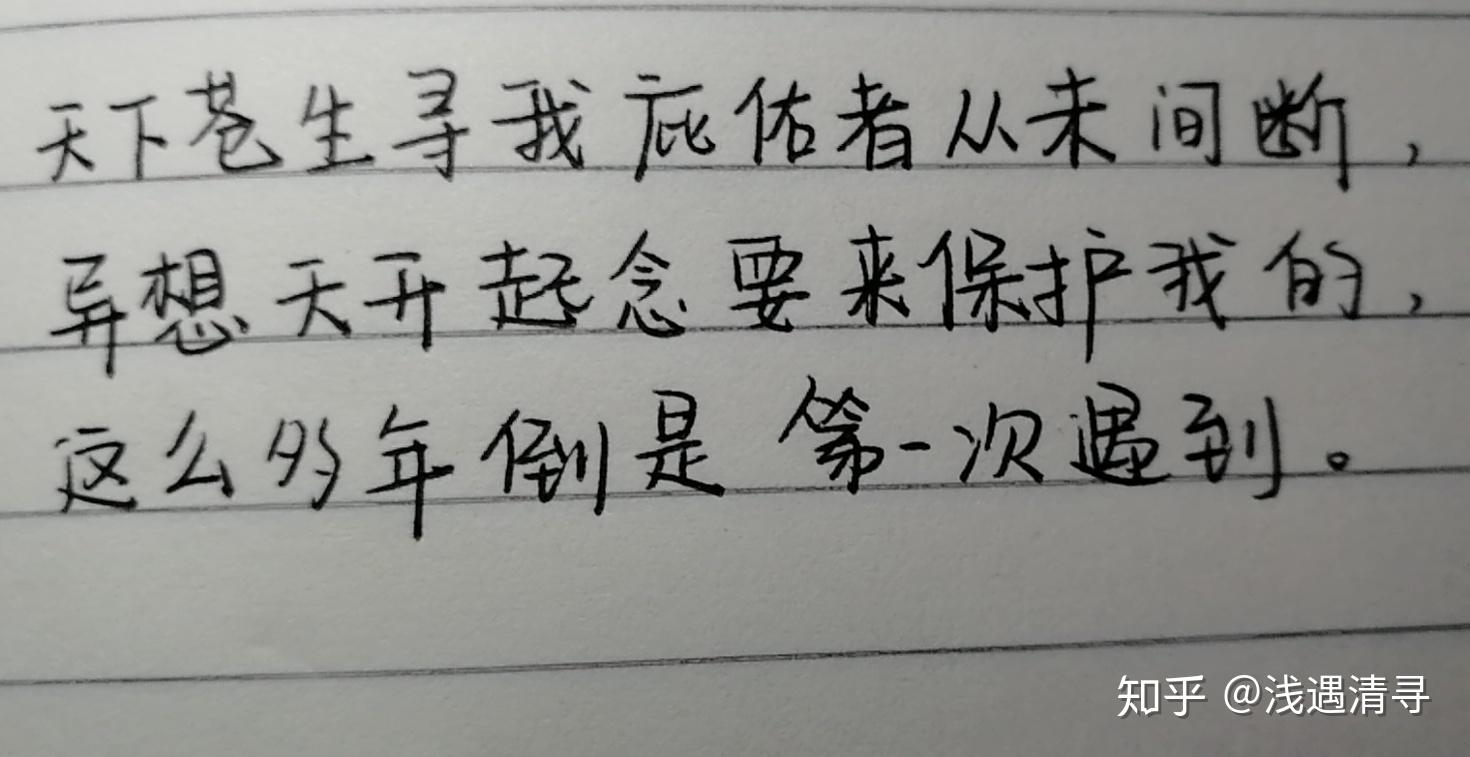 天下苍生寻我庇佑者从未间断，
异想天开起念要来保护我的，
这么多年倒是第一次遇到。
知乎 @浅遇清寻